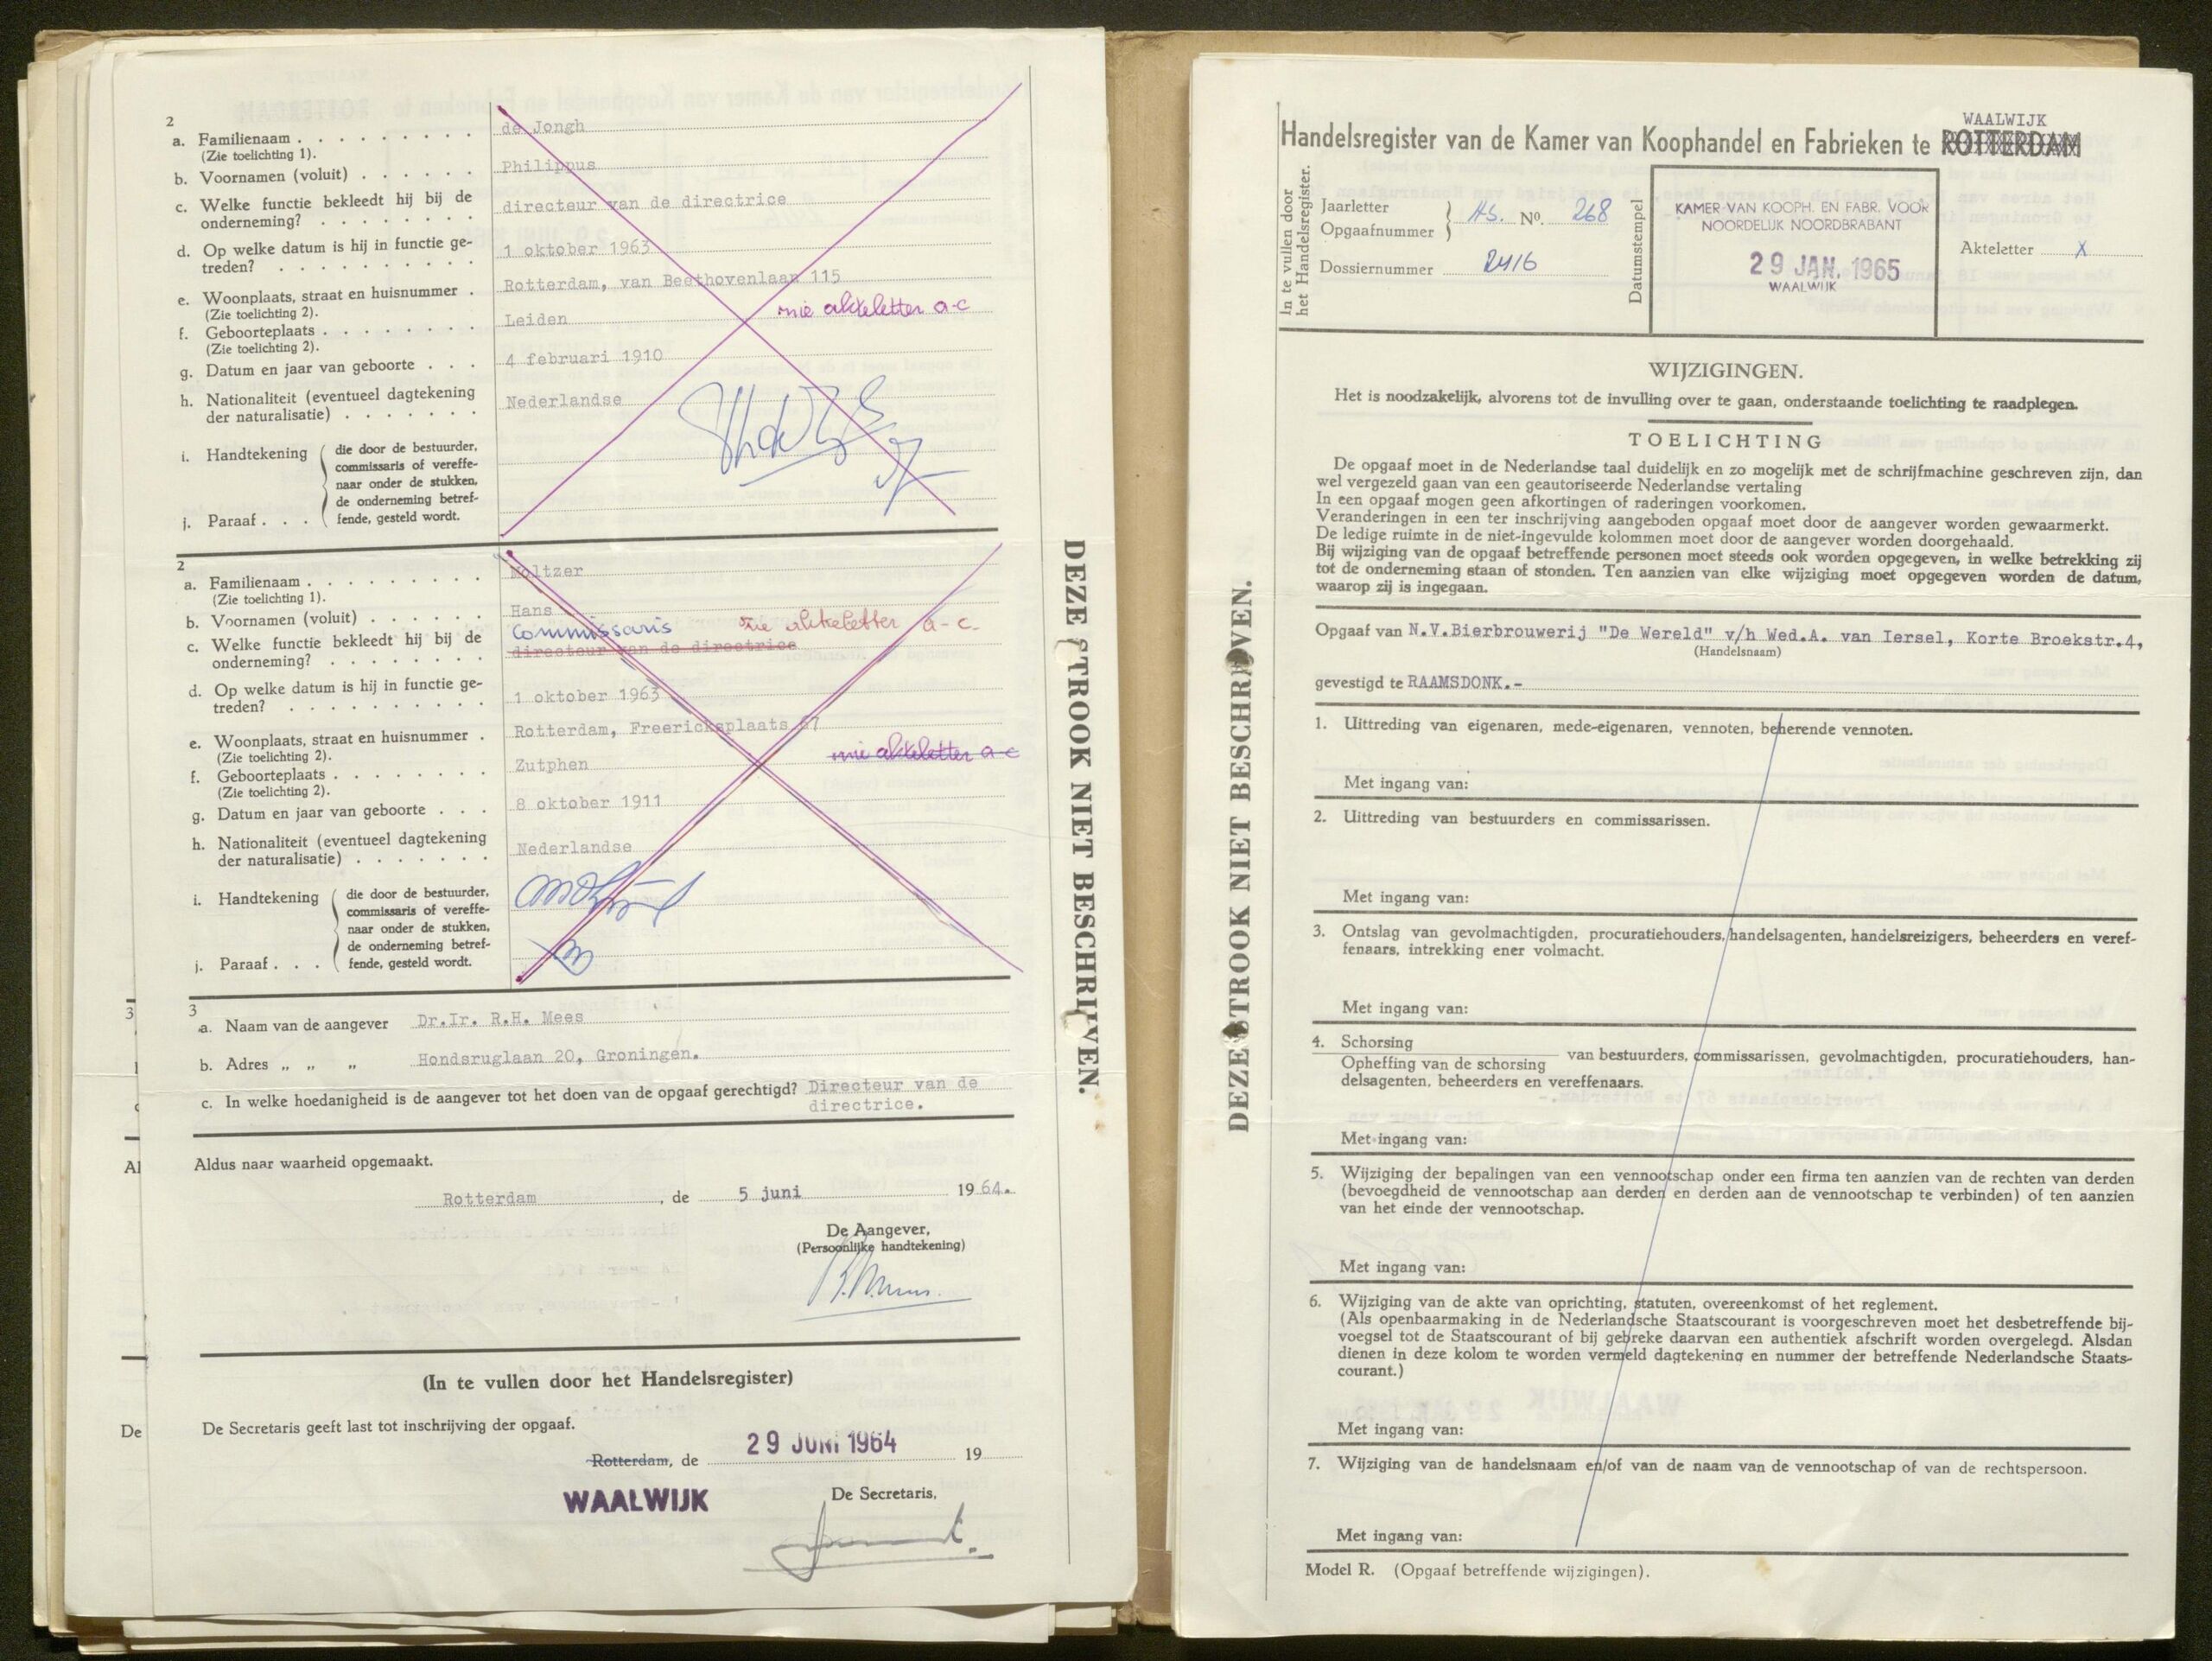 2
a. Familienaam . . . . . . . . . de Jongh
(Zie toelichting 1).
b. Voornamen (voluit) . . . . . . Philippus
c. Welke functie bekleedt hij bij de
onderneming? . . . . . . . . directeur van de directrice
d. Op welke datum is hij in functie ge-
treden? . . . . . . . . . . 1 oktober 1963
e. Woonplaats, straat en huisnummer . Rotterdam, van Beethovenlaan 115
(Zie toelichting 2).
zie akteletter a-c
f. Geboorteplaats . . . . . . . . Leiden
(Zie toelichting 2).
g. Datum en jaar van geboorte . . . 4 februari 1910
h. Nationaliteit (eventueel dagtekening
der naturalisatie) . . . . . . . Nederlandse
i. Handtekening
j. Paraaf . . .
die door de bestuurder,
commissaris of vereffe-
naar onder de stukken,
de onderneming betref-
fende, gesteld wordt.
2
a. Familienaam . . . . . . . . . Moltzer
(Zie toelichting 1).
b. Voornamen (voluit) . . . . . . Hans
Commissaris zie akteletter a-c.
c. Welke functie bekleedt hij bij de
onderneming? . . . . . . . . directeur van de directrice
d. Op welke datum is hij in functie ge-
treden? . . . . . . . . . . 1 oktober 1963
e. Woonplaats, straat en huisnummer . Rotterdam, Freericksplaats 67
(Zie toelichting 2).
zie akteletter a-c
f. Geboorteplaats . . . . . . . . Zutphen
(Zie toelichting 2).
g. Datum en jaar van geboorte . . . 8 oktober 1911
h. Nationaliteit (eventueel dagtekening
der naturalisatie) . . . . . . . Nederlandse
i. Handtekening
j. Paraaf . . .
die door de bestuurder,
commissaris of vereffe-
naar onder de stukken,
de onderneming betref-
fende, gesteld wordt.
3
a. Naam van de aangever Dr.Ir. R.H. Mees
b. Adres „ „ „ Hondsruglaan 20, Groningen.
c. In welke hoedanigheid is de aangever tot het doen van de opgaaf gerechtigd? Directeur van de
directrice.
Aldus naar waarheid opgemaakt.
Rotterdam, de 5 juni 1964.
De Aangever,
(Persoonlijke handtekening)
(In te vullen door het Handelsregister)
De Secretaris geeft last tot inschrijving der opgaaf.
Rotterdam, de 29 JUNI 1964 19
WAALWIJK
De Secretaris,
DEZE STROOK NIET BESCHRIJVEN.
3
Al
De
DEZE STROOK NIET BESCHRIJVEN.
WAALWIJK
Handelsregister van de Kamer van Koophandel en Fabrieken te ROTTERDAM
In te vullen door
het Handelsregister.
Jaarletter
Opgaafnummer
No. 268
Dossiernummer 2416
Datumstempel
KAMER VAN KOOPH. EN FABR. VOOR
NOORDELIJK NOORDBRABANT
29 JAN. 1965
WAALWIJK
Akteletter X
WIJZIGINGEN.
Het is noodzakelijk, alvorens tot de invulling over te gaan, onderstaande toelichting te raadplegen.
TOELICHTING
De opgaaf moet in de Nederlandse taal duidelijk en zo mogelijk met de schrijfmachine geschreven zijn, dan
wel vergezeld gaan van een geautoriseerde Nederlandse vertaling
In een opgaaf mogen geen afkortingen of raderingen voorkomen.
Veranderingen in een ter inschrijving aangeboden opgaaf moet door de aangever worden gewaarmerkt.
De ledige ruimte in de niet-ingevulde kolommen moet door de aangever worden doorgehaald.
Bij wijziging van de opgaaf betreffende personen moet steeds ook worden opgegeven, in welke betrekking zij
tot de onderneming staan of stonden. Ten aanzien van elke wijziging moet opgegeven worden de datum,
waarop zij is ingegaan.
Opgaaf van N.V.Bierbrouwerij "De Wereld" v/h Wed.A. van Iersel, Korte Broekstr.4,
(Handelsnaam)
gevestigd te RAAMSDONK.-
1. Uittreding van eigenaren, mede-eigenaren, vennoten, beherende vennoten.
Met ingang van:
2. Uittreding van bestuurders en commissarissen.
Met ingang van:
3. Ontslag van gevolmachtigden, procuratiehouders, handelsagenten, handelsreizigers, beheerders en veref-
fenaars, intrekking ener volmacht.
Met ingang van:
4. Schorsing
Opheffing van de schorsing van bestuurders, commissarissen, gevolmachtigden, procuratiehouders, han-
delsagenten, beheerders en vereffenaars.
Met ingang van:
5. Wijziging der bepalingen van een vennootschap onder een firma ten aanzien van de rechten van derden
(bevoegdheid de vennootschap aan derden en derden aan de vennootschap te verbinden) of ten aanzien
van het einde der vennootschap.
Met ingang van:
6. Wijziging van de akte van oprichting, statuten, overeenkomst of het reglement.
(Als openbaarmaking in de Nederlandsche Staatscourant is voorgeschreven moet het desbetreffende bij-
voegsel tot de Staatscourant of bij gebreke daarvan een authentiek afschrift worden overgelegd. Alsdan
dienen in deze kolom te worden vermeld dagtekening en nummer der betreffende Nederlandsche Staats-
courant.)
Met ingang van:
7. Wijziging van de handelsnaam en/of van de naam van de vennootschap of van de rechtspersoon.
Met ingang van:
Model R. (Opgaaf betreffende wijzigingen).